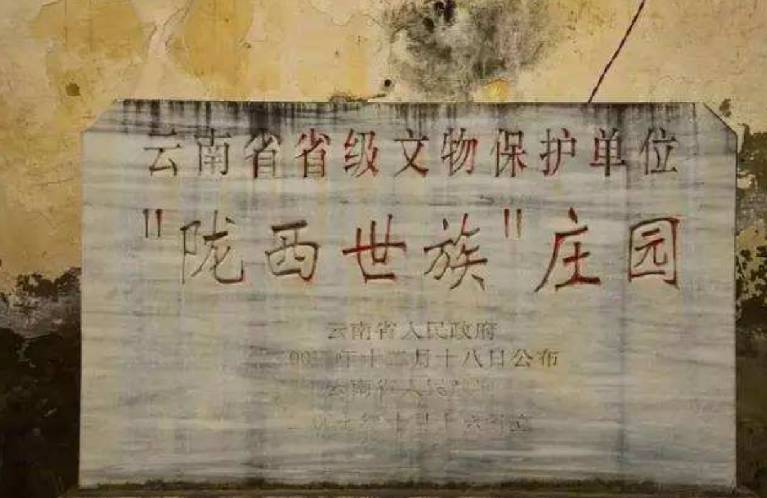 云南省省级文物保护单位
"陇西世族"庄园
云南省人民政府
年十二月十八日公布
云南省人民